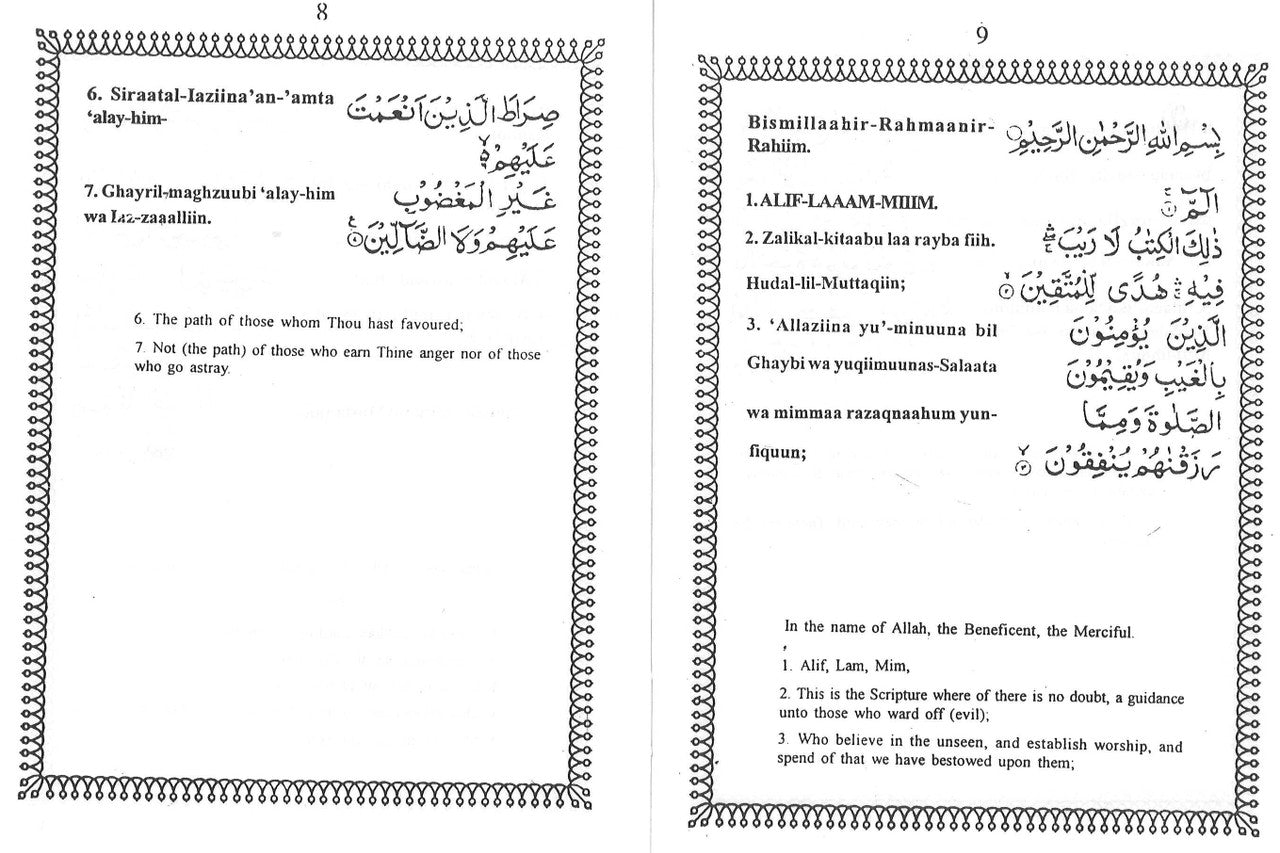 8
6. Siraatal-Iaziina’an-’amta
‘alay-him-
صِرَاطَ الَّذِيْنَ اَنْعَمْتَ
عَلَيْهِمْ ۙ
7. Ghayril-maghzuubi ‘alay-him
wa Laz-zaaalliin.
غَيْرِ الْمَغْضُوْبِ
عَلَيْهِمْ وَلَا الضَّآلِّيْنَ
6. The path of those whom Thou hast favoured;
7. Not (the path) of those who earn Thine anger nor of those
who go astray.
9
Bismillaahir-Rahmaanir-
Rahiim.
بِسْمِ اللهِ الرَّحْمٰنِ الرَّحِيْمِ
1. ALIF-LAAAM-MIIIM.
الٓمّٓ ۚ ۱
2. Zalikal-kitaabu laa rayba fiih.
ذٰلِكَ الْكِتٰبُ لَا رَيْبَ ۛ
Hudal-lil-Muttaqiin;
فِيْهِ ۛ هُدًى لِّلْمُتَّقِيْنَ ۙ ۲
3. ‘Allaziina yu’-minuuna bil
الَّذِيْنَ يُؤْمِنُوْنَ
Ghaybi wa yuqiimuunas-Salaata
بِالْغَيْبِ وَيُقِيْمُوْنَ
wa mimmaa razaqnaahum yun-
الصَّلٰوةَ وَمِمَّا
fiquun;
رَزَقْنٰهُمْ يُنْفِقُوْنَ ۙ ۳
In the name of Allah, the Beneficent, the Merciful.
1. Alif, Lam, Mim,
2. This is the Scripture where of there is no doubt, a guidance
unto those who ward off (evil);
3. Who believe in the unseen, and establish worship, and
spend of that we have bestowed upon them;